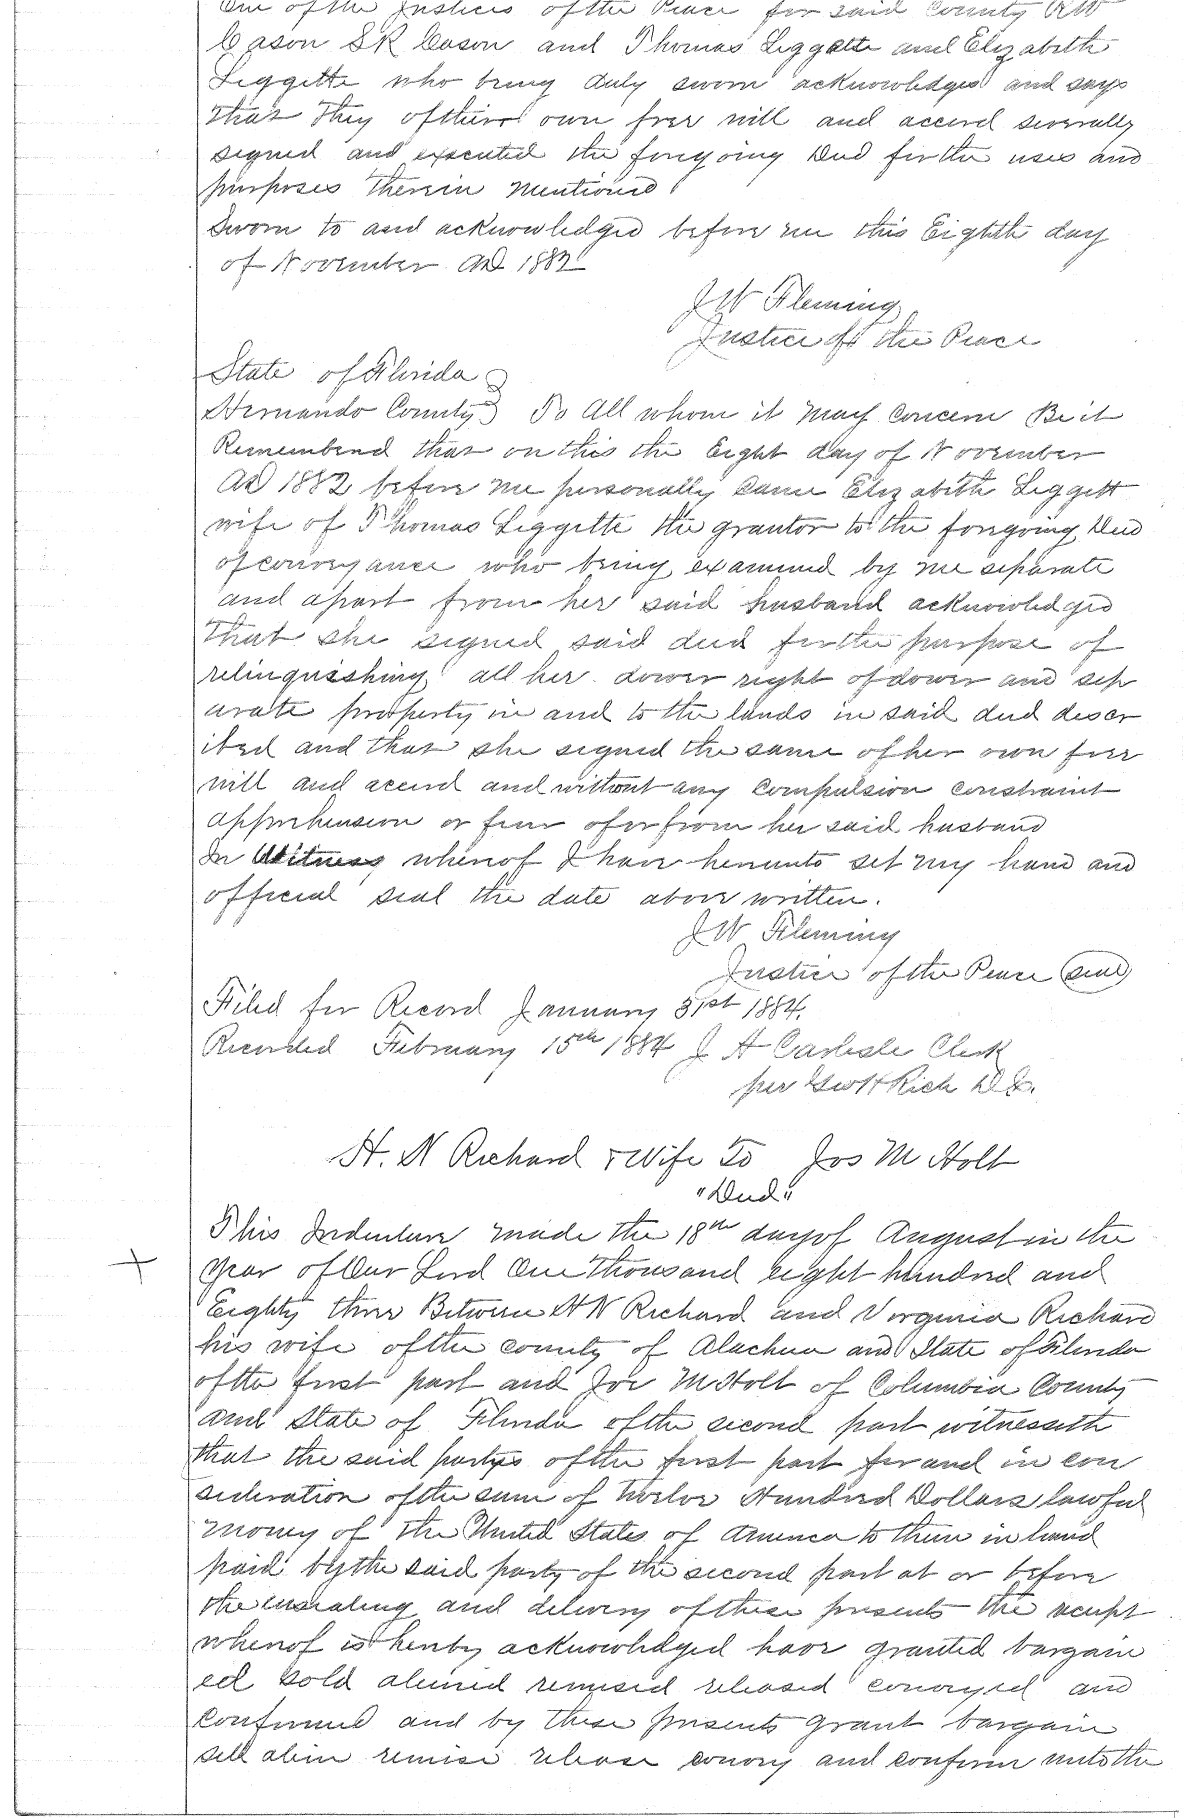 One of the Justices of the Peace for said County RW
Cason SR Cason and Thomas Leggette and Elizabeth
Leggette who being duly sworn acknowledges and says
that they of their own free will and accord severally
signed and executed the foregoing Deed for the uses and
purposes therein mentioned
Sworn to and acknowledged before me this Eighth day
of November AD 1882
J W Fleming
Justice of the Peace
State of Florida
Hernando County To All whom it may Concern Be it
Remembered that on this the Eight day of November
AD 1882 before me personally Came Elizabeth Leggett
wife of Thomas Leggette the grantor to the foregoing Deed
of conveyance who being examined by me separate
and apart from her said husband acknowledged
that she signed said deed for the purpose of
relinquishing all her dower right of dower and sep
arate property in and to the lands in said deed descr
ibed and that she signed the same of her own free
will and accord and without any compulsion constraint
apprehension or fear of or from her said husband
In Witness whereof I have hereunto set my hand and
official seal the date above written.
J W Fleming
Justice of the Peace (seal)
Filed for Record January 31st 1884.
Recorded February 15th 1884 J H Carlisle Clerk
per Geo H Rich D.C.
H. N Richard & Wife To Jos M Holt
"Deed"
This Indenture made the 18th day of August in the
Year of Our Lord One thousand eight hundred and
Eighty three Between H N Richard and Vergenia Richard
his wife of the county of Alachua and State of Florida
of the first part and Joe M Holt of Columbia County
and State of Florida of the second part witnesseth
that the said partys of the first part for and in con
sideration of the sum of Twelve Hundred Dollars lawful
money of the United States of America to them in hand
paid by the said party of the second part at or before
the ensealing and delivery of these presents the receipt
whereof is hereby acknowledged have granted bargain
ed sold aliened remised released conveyed and
confirmed and by these presents grant bargain
sell alien remise release convey and confirm unto the